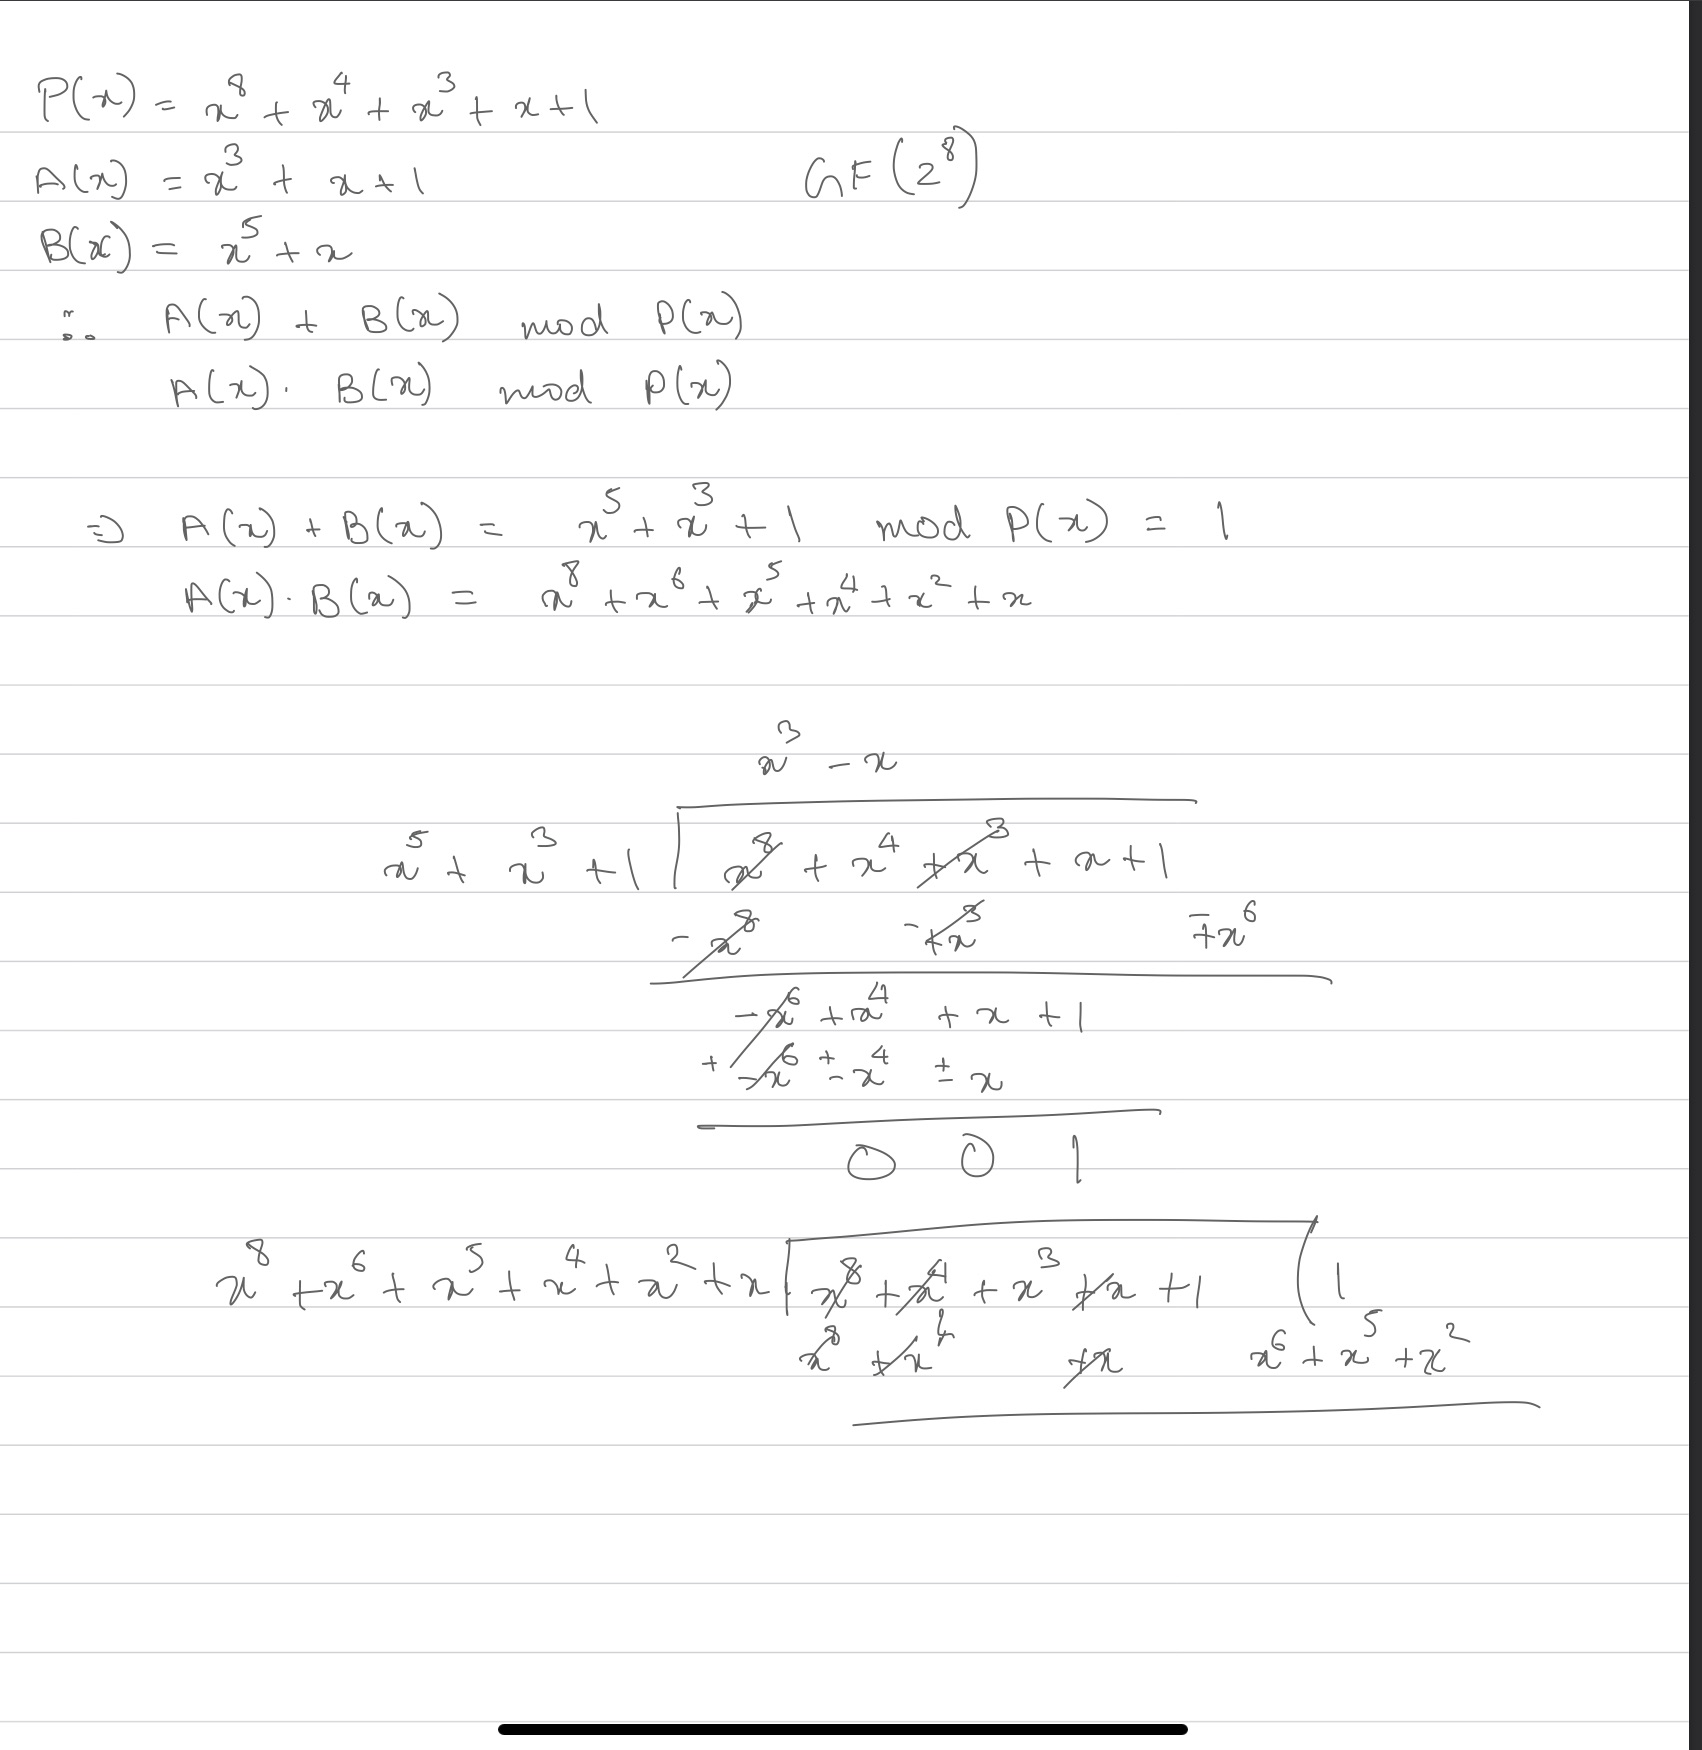 P(x) = x⁸ + x⁴ + x³ + x + 1
A(x) = x³ + x + 1 GF(2⁸)
B(x) = x⁵ + x
∴ A(x) + B(x) mod P(x)
A(x) · B(x) mod P(x)
⇒ A(x) + B(x) = x⁵ + x³ + 1 mod P(x) = 1
A(x) · B(x) = x⁸ + x⁶ + x⁵ + x⁴ + x² + x
x³ - x
x⁵ + x³ + 1 | x⁸ + x⁴ + x³ + x + 1
- x⁸ - + x³ - + x⁶
- x⁶ + x⁴ + x + 1
+ - x⁶ + - x⁴ + - x
0 0 1
x⁸ + x⁶ + x⁵ + x⁴ + x² + x | x⁸ + x⁴ + x³ + x + 1 ( 1
x⁸ + x⁴ + x x⁶ + x⁵ + x²